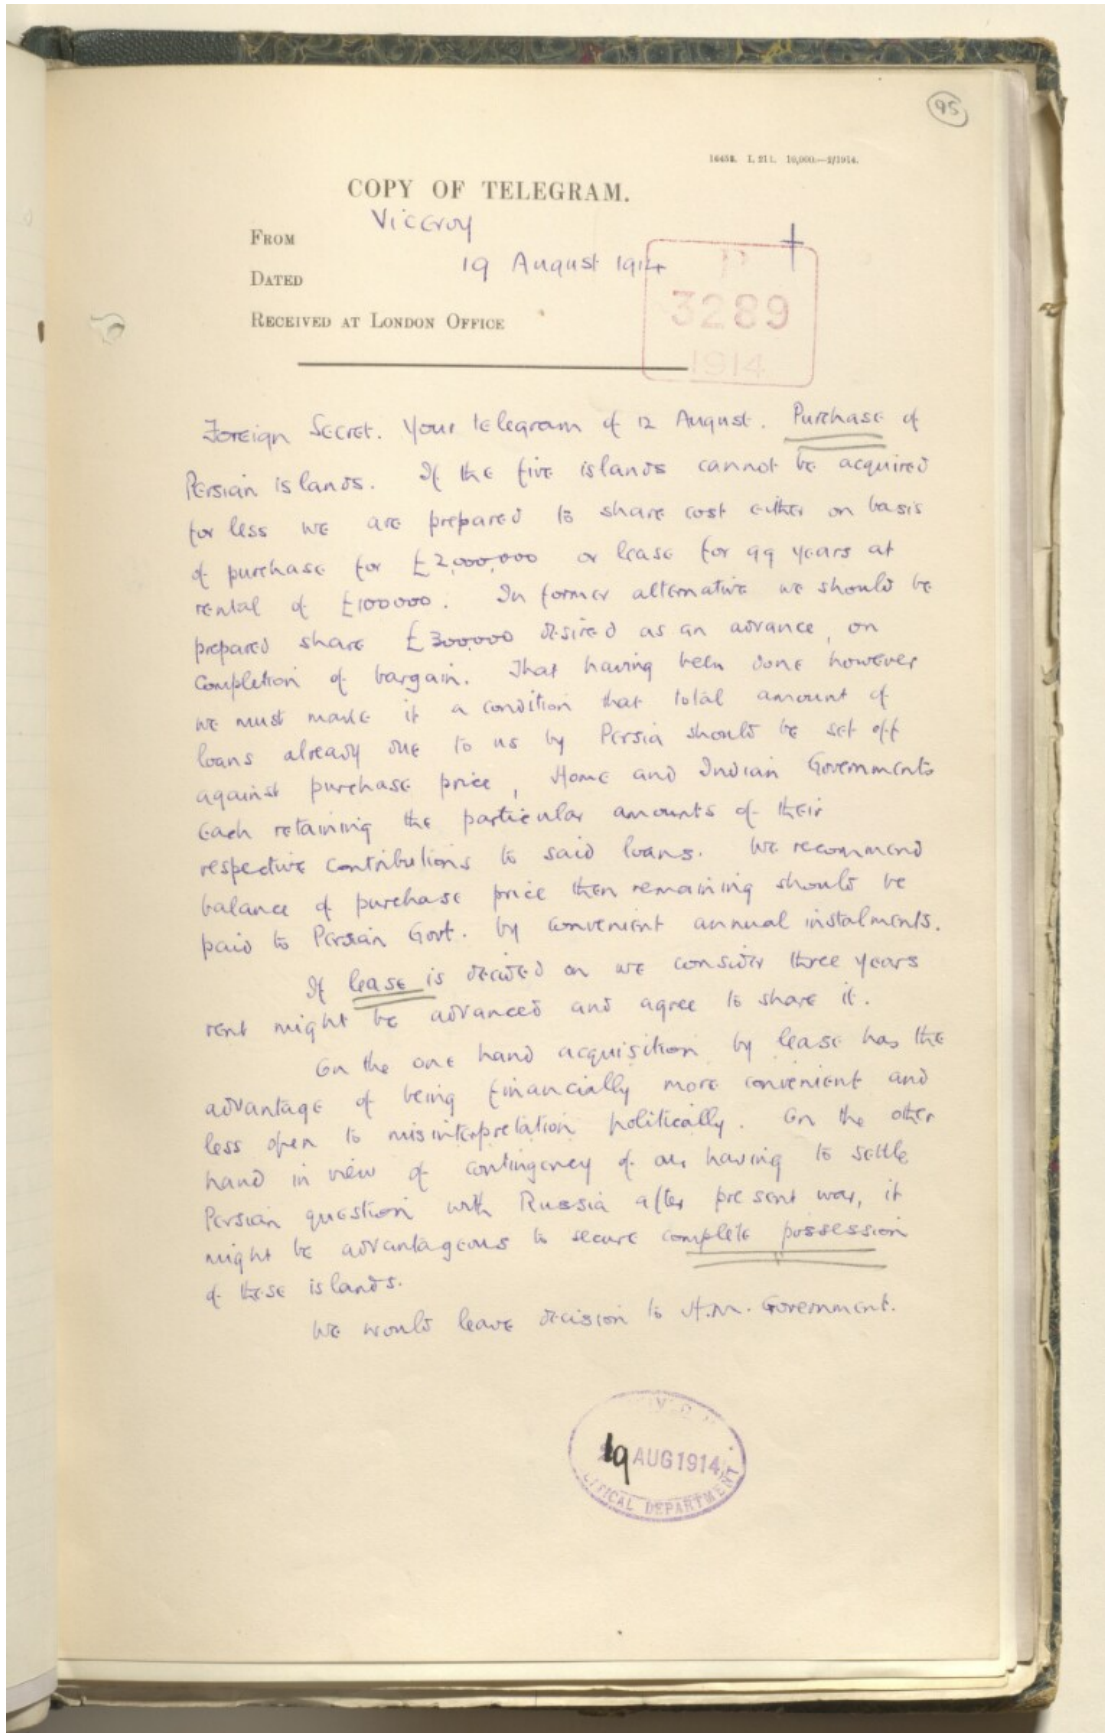 95
16458. I. 911. 10,000.—2/1914.
COPY OF TELEGRAM.
FROM Viceroy
DATED 19 August 1914
RECEIVED AT LONDON OFFICE
P
3289
1914
Foreign Secret. Your telegram of 12 August. Purchase of
Persian islands. If the five islands cannot be acquired
for less we are prepared to share cost either on basis
of purchase for £2,000,000 or lease for 99 years at
rental of £100000. In former alternative we should be
prepared share £300,000 desired as an advance, on
completion of bargain. That having been done however
we must make it a condition that total amount of
loans already due to us by Persia should be set off
against purchase price, Home and Indian Governments
each retaining the particular amounts of their
respective contributions to said loans. We recommend
balance of purchase price then remaining should be
paid to Persian Govt. by convenient annual instalments.
If lease is decided on we consider three years
rent might be advanced and agree to share it.
On the one hand acquisition by lease has the
advantage of being financially more convenient and
less open to misinterpretation politically. On the other
hand in view of contingency of our having to settle
Persian question with Russia after present war, it
might be advantageous to secure complete possession
of these islands.
We would leave decision to H.M. Government.
19 AUG 1914
DEPARTMENT